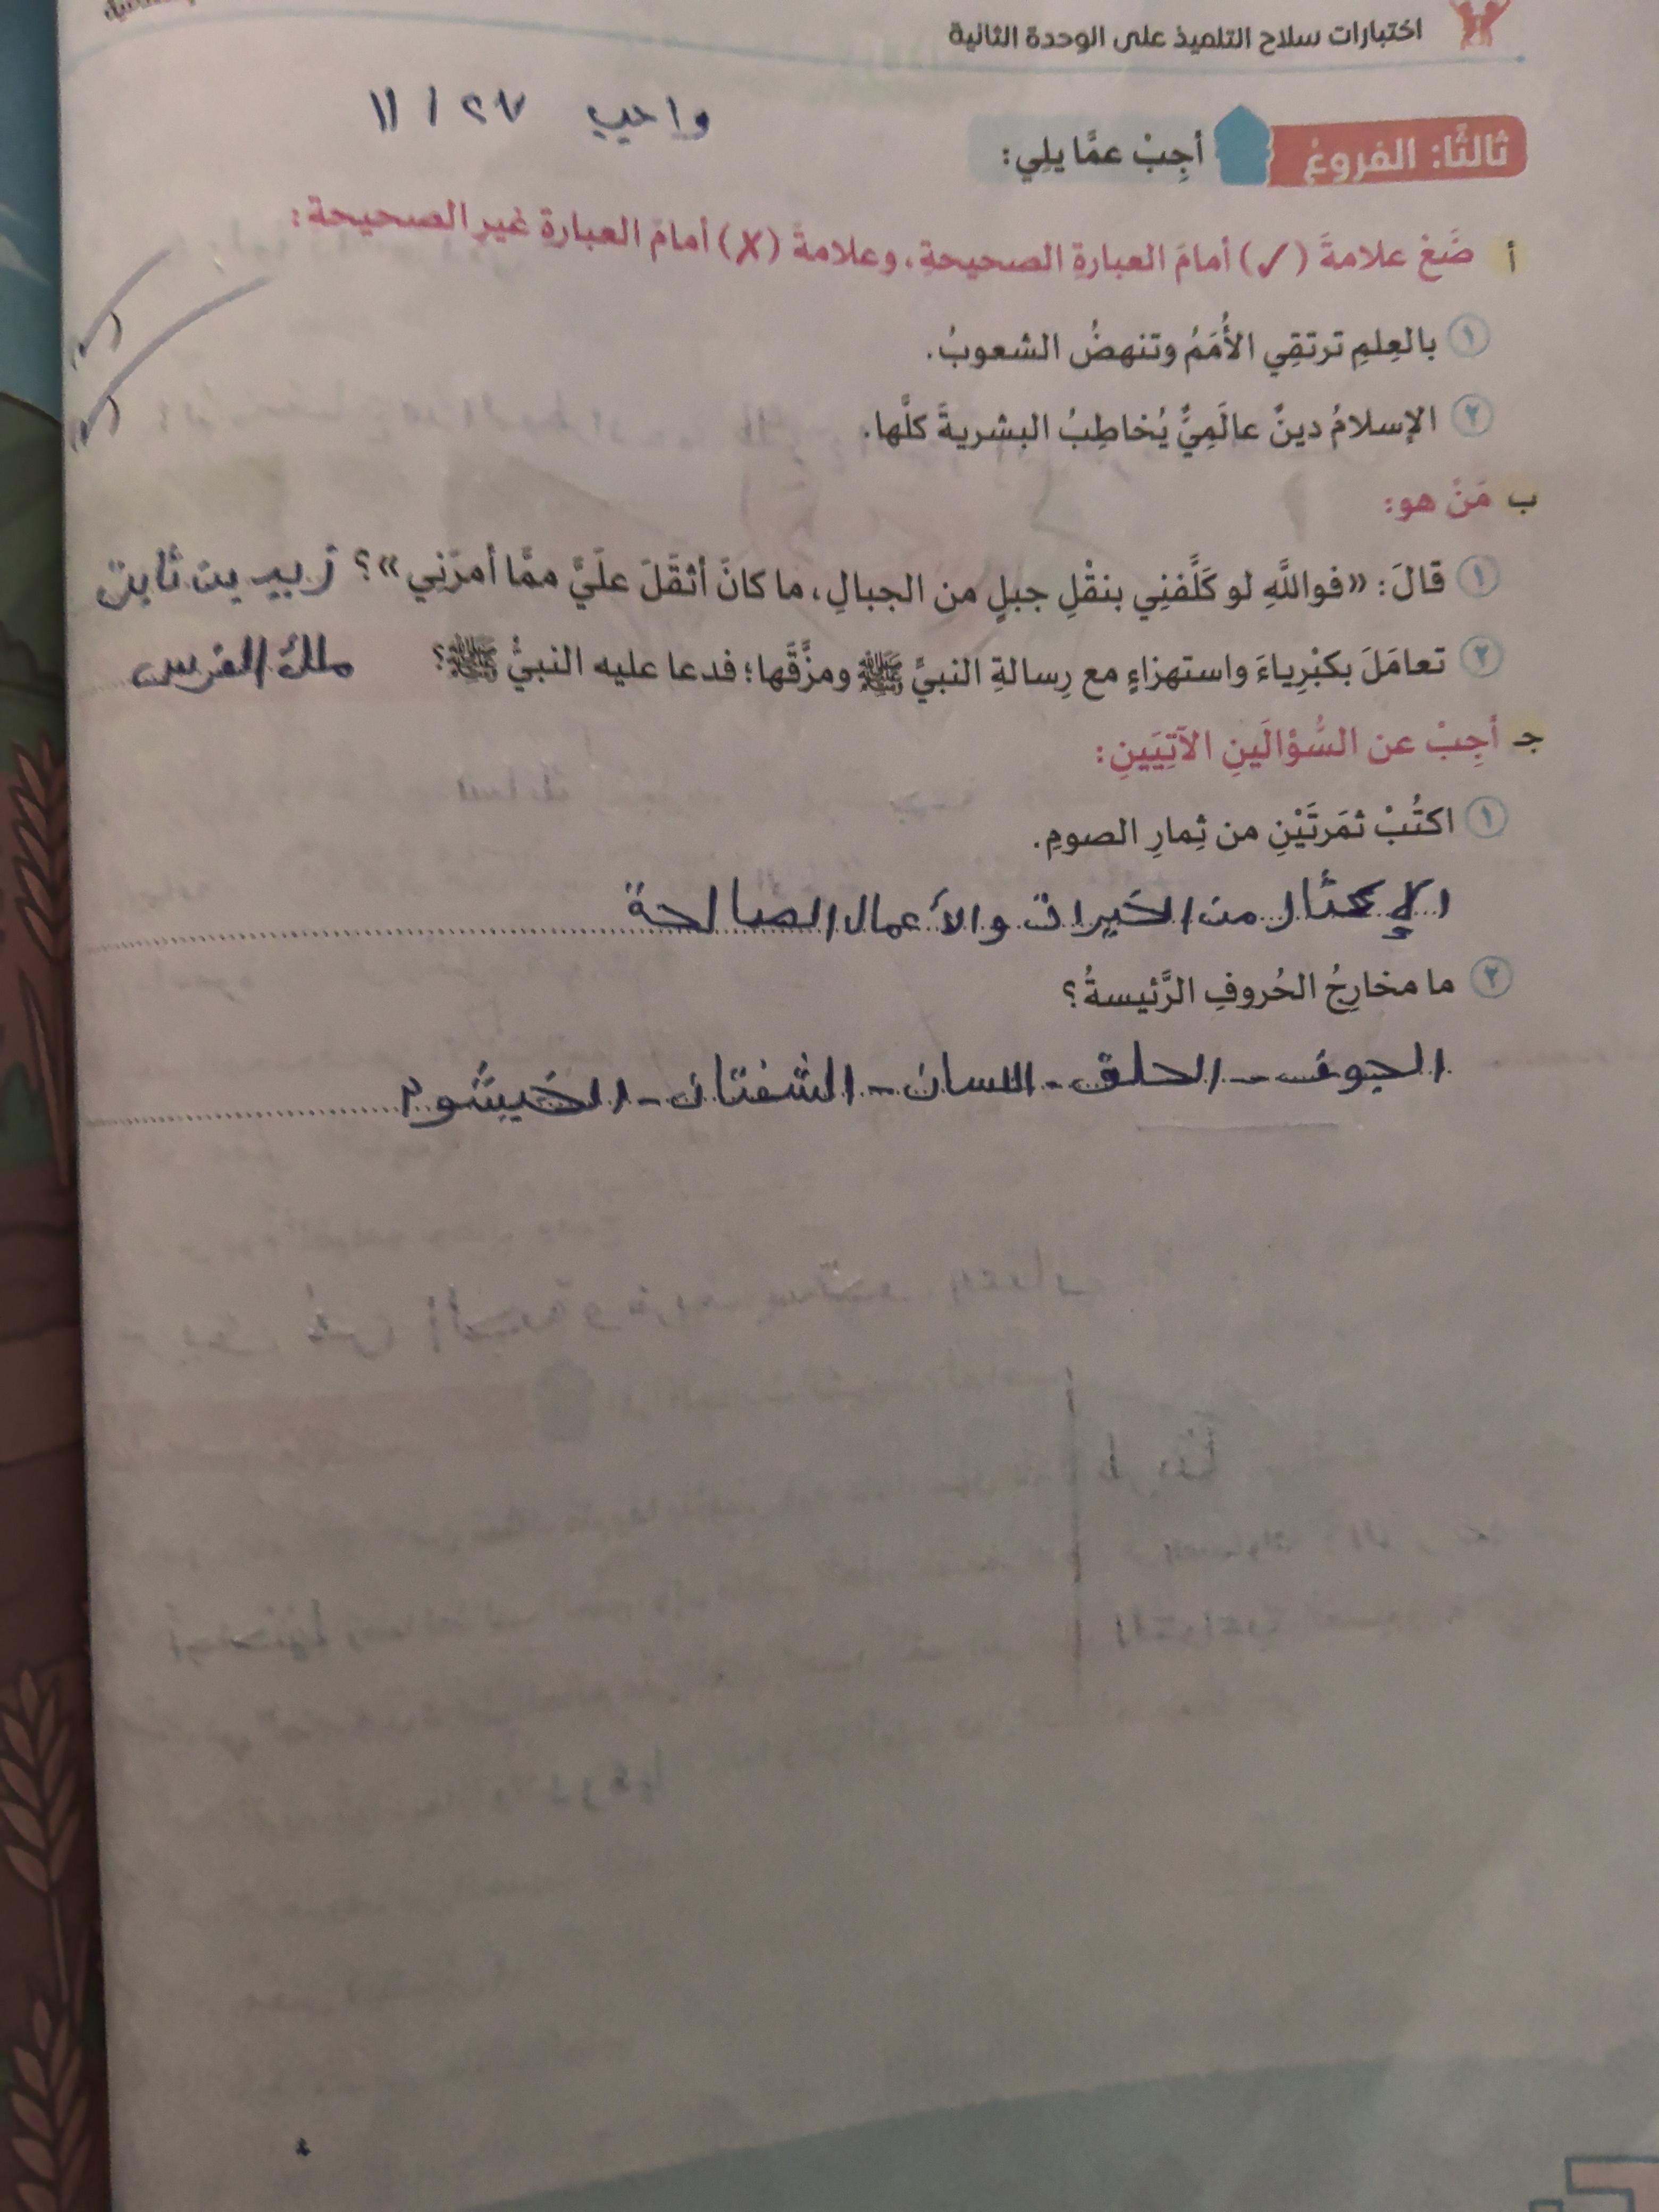 اختبارات سلاح التلميذ على الوحدة الثانية
واجب ٢٧ / ١١
ثالثًا: الفروع أجِبْ عمَّا يلِي:
أ ضَعْ علامةَ (✓) أمامَ العبارةِ الصحيحةِ، وعلامةَ (✗) أمامَ العبارةِ غيرِ الصحيحةِ:
١ بالعِلمِ ترتقِي الأُمَمُ وتنهضُ الشعوبُ. (✓)
٢ الإسلامُ دينٌ عالَمِيٌّ يُخاطِبُ البشريةَ كلَّها. (✓)
ب مَنْ هو:
١ قالَ: «فواللَّهِ لو كَلَّفنِي بنقْلِ جبلٍ من الجبالِ، ما كانَ أثقَلَ علَيَّ ممَّا أمرَنِي»؟ زيد بن ثابت
٢ تعامَلَ بكبْرِياءَ واستهزاءٍ مع رِسالةِ النبيِّ ﷺ ومزَّقَها؛ فدعا عليه النبيُّ ﷺ؟ ملك الفرس
جـ أجِبْ عن السُّؤالَينِ الآتِيَينِ:
١ اكتُبْ ثمَرتَيْنِ من ثِمارِ الصومِ.
الإكثار من الخيرات والأعمال الصالحة
٢ ما مخارِجُ الحُروفِ الرَّئيسةُ؟
الجوف - الحلق - اللسان - الشفتان - الخيشوم